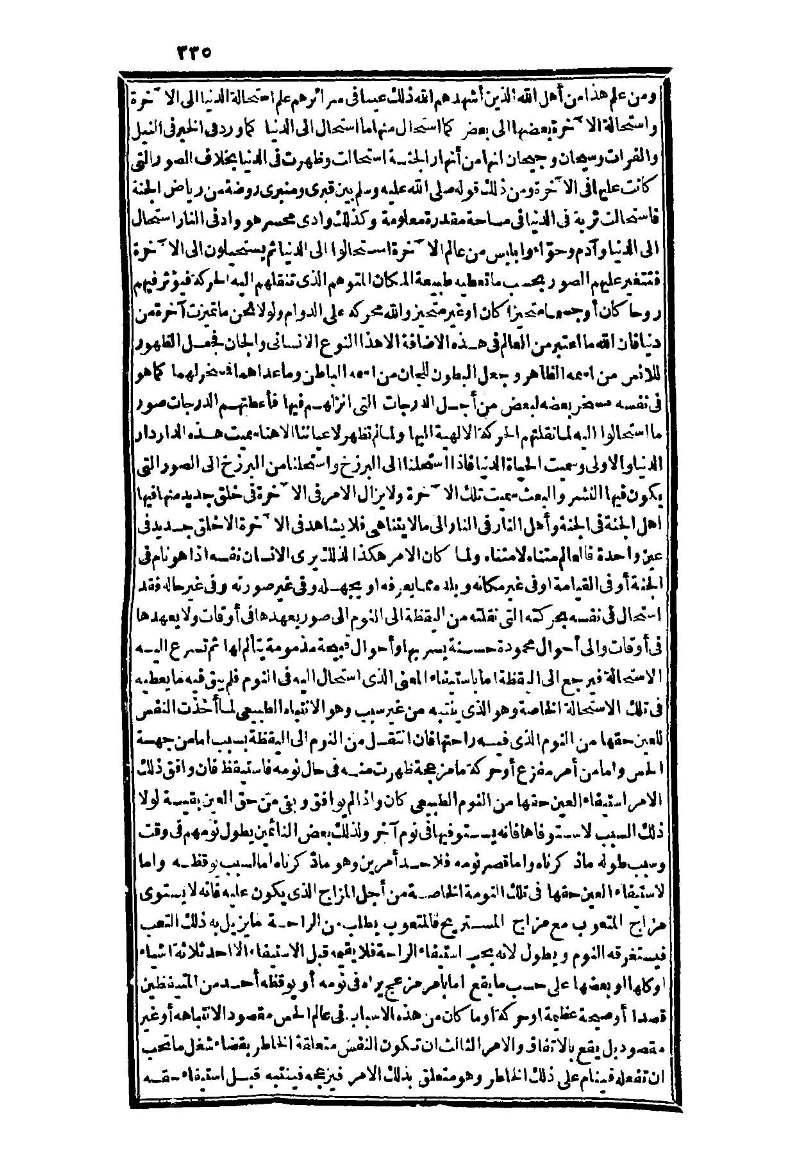 ٣٣٥
ومن علم هذا من أهل الله الذين أشهدهم الله ذلك عينا في سرائرهم علم استحالة الدنيا الى الآخرة
واستحالة الآخرة بعضها الى بعض كما استحال منها ما استحال الى الدنيا كما ورد في الخبر في النيل
والفرات وسيحان وجيحان انها من أنهار الجنة استحالت وظهرت في الدنيا بخلاف الصور التي
كانت عليها في الآخرة ومن ذلك قوله صلى الله عليه وسلم بين قبرى ومنبرى روضة من رياض الجنة
فاستحالت تربة في الدنيا في مساحة مقدرة معلومة وكذلك وادى محسر هو واد في النار استحال
الى الدنيا وآدم وحوّاء وابليس من عالم الآخرة استحالوا الى الدنيا ثم يستحيلون الى الآخرة
فتتغير عليهم الصور بحسب ما تعطيه طبيعة المكان المتوهم الذى تنقلهم اليه الحركة فيؤثر فيهم
روحا كان أو جسما متحيزا كان او غير متحيز والله محركه على الدوام ولولا نحن ما تميزت آخرة من
دنيا فان الله ما اعتبر من العالم في هذه الاضافة الا هذا النوع الانسانى والجان فجعل الظهور
للانس من اسمه الظاهر وجعل البطون للجان من اسمه الباطن وما عداهما فسخر لهما كما هو
في نفسه مسخر بعضه لبعض من أجل الدرجات التي انزلهم فيها فأعطتهم الدرجات صور
ما استحالوا اليه لما نقلتهم الحركة الالهية اليها ولما لم تظهر لاعياننا الا هنا سميت هذه الدار دار
الدنيا والاولى وسميت الحياة الدنيا فاذا استحلنا الى البرزخ واستحلنا من البرزخ الى الصور التي
يكون فيها النشر والبعث سميت تلك الآخرة ولا يزال الامر في الآخرة في خلق جديد منها فيها
اهل الجنة في الجنة وأهل النار في النار الى ما لا يتناهى فلا يشاهد في الآخرة الا خلق جديد في
عين واحدة فالعالم متناه لا متناه ولما كان الامر هكذا لذلك يرى الانسان نفسه اذا هو نام في
الجنة أو في القيامة او في غير مكانه وبلده مما يعرفه او يجهله وفى غير صورته وفى غير حاله فقد
استحال في نفسه بحركته التي نقلته من اليقظة الى النوم الى صور يعهدها في أوقات ولا يعهدها
في أوقات والى أحوال محمودة حسنة يسر بها وأحوال قبيحة مذمومة يتألم لها ثم تسرع اليه
الاستحالة فيرجع الى اليقظة اما باستيفاء المعنى الذى استحال اليه في النوم فلم يبق فيه ما يعطيه
في تلك الاستحالة الخاصة وهو الذى ينتبه من غير سبب وهو الانتباه الطبيعى لما أخذت النفس
للعين حقها من النوم الذى فيه راحتها فان انتقل من النوم الى اليقظة بسبب اما من جهة
الحس واما من أمر مفزع أو حركة ما مزعجة ظهرت منه في حال نومه فاستيقظ فان وافق ذلك
الامر استيفاء العين حقها من النوم الطبيعى كان واذا لم يوافق وبقى من حق العين بقية لولا
ذلك السبب لاستوفاها فانه يستوفيها في نوم آخر ولذلك بعض النائمين يطول نومهم في وقت
وسبب طوله ما ذكرناه واما قصر نومه فلاحد أمرين وهو ما ذكرناه اما لسبب يوقظه واما
لاستيفاء العين حقها في تلك النومة الخاصة من أجل المزاج الذى يكون عليه فانه لا يستوى
مزاج المتعوب مع مزاج المستريح فالمتعوب يطلب من الراحة ما يزيل به ذلك التعب
فيستغرقه النوم ويطول لانه يحب استيفاء الراحة فلا يقيمه قبل الاستيفاء الا احد ثلاثة اشياء
او كلها او بعضها على حسب ما يقع اما بامر مزعج يراه في نومه أو يوقظه أحد من المتيقظين
قصدا أو صيحة عظيمة او حركة او ما كان من هذه الاسباب في عالم الحس مقصود الانتباهه أو غير
مقصود بل يقع بالاتفاق والامر الثالث ان تكون النفس متعلقة الخاطر بقضاء شغل ما تحب
ان تفعله فينام على ذلك الخاطر وهو متعلق بذلك الامر فيزعجه فينتبه قبل استيفاء حقه